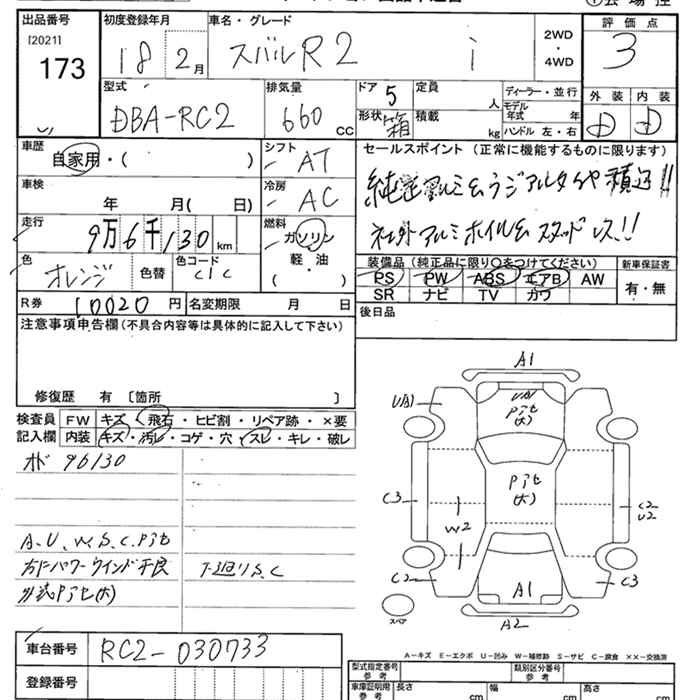 出品番号
[2021]
173
初度登録年月
18 2月
車名・グレード
スバルR2 i
2WD
・
4WD
評価点
3
型式
DBA-RC2
排気量
660 CC
ドア 5
形状 箱
定員 人
積載 kg
ディーラー・並行
モデル年式 年
ハンドル 左・右
外装 内装
D D
車歴
自家用・( )
シフト
AT
冷房
AC
車検
年 月( 日)
走行
9万6千130km
燃料
ガソリン
軽・油
( ・ )
色
オレンジ
色替
色コード
C1C
R券 10020円
名変期限 月 日
セールスポイント(正常に機能するものに限ります)
純正アルミ&ラジアルタイヤ積込!!
社外アルミホイル& スタッドレス!!
装備品(純正品に限り〇をつけてください)
新車保証書
PS PW ABS エアB AW
SR ナビ TV カワ
有・無
後日品
注意事項申告欄(不具合内容等は具体的に記入して下さい)
修復歴 有 〔箇所 〕
検査員
記入欄
FW キズ・飛石・ヒビ割・リペア跡・×要
内装 キズ・汚レ・コゲ・穴・スレ・キレ・破レ
オド 96130
A.U、W.S.C.Pit
右ドパワーウインド不良
外装Pit(大)
下廻りS.C
A1
UA1
UA1
Pit
(大)
Pit
(大)
C3
W2
C2
U2
C2
C3
A1
A2
スペア
A-キズ E-エクボ U-凹み W-補修跡 S-サビ C-腐食 ××-交換済
車台番号
RC2-030733
登録番号
型式指定番号
参考
類別区分番号
参考
車庫証明用
参考
長さ cm
幅 cm
高さ cm